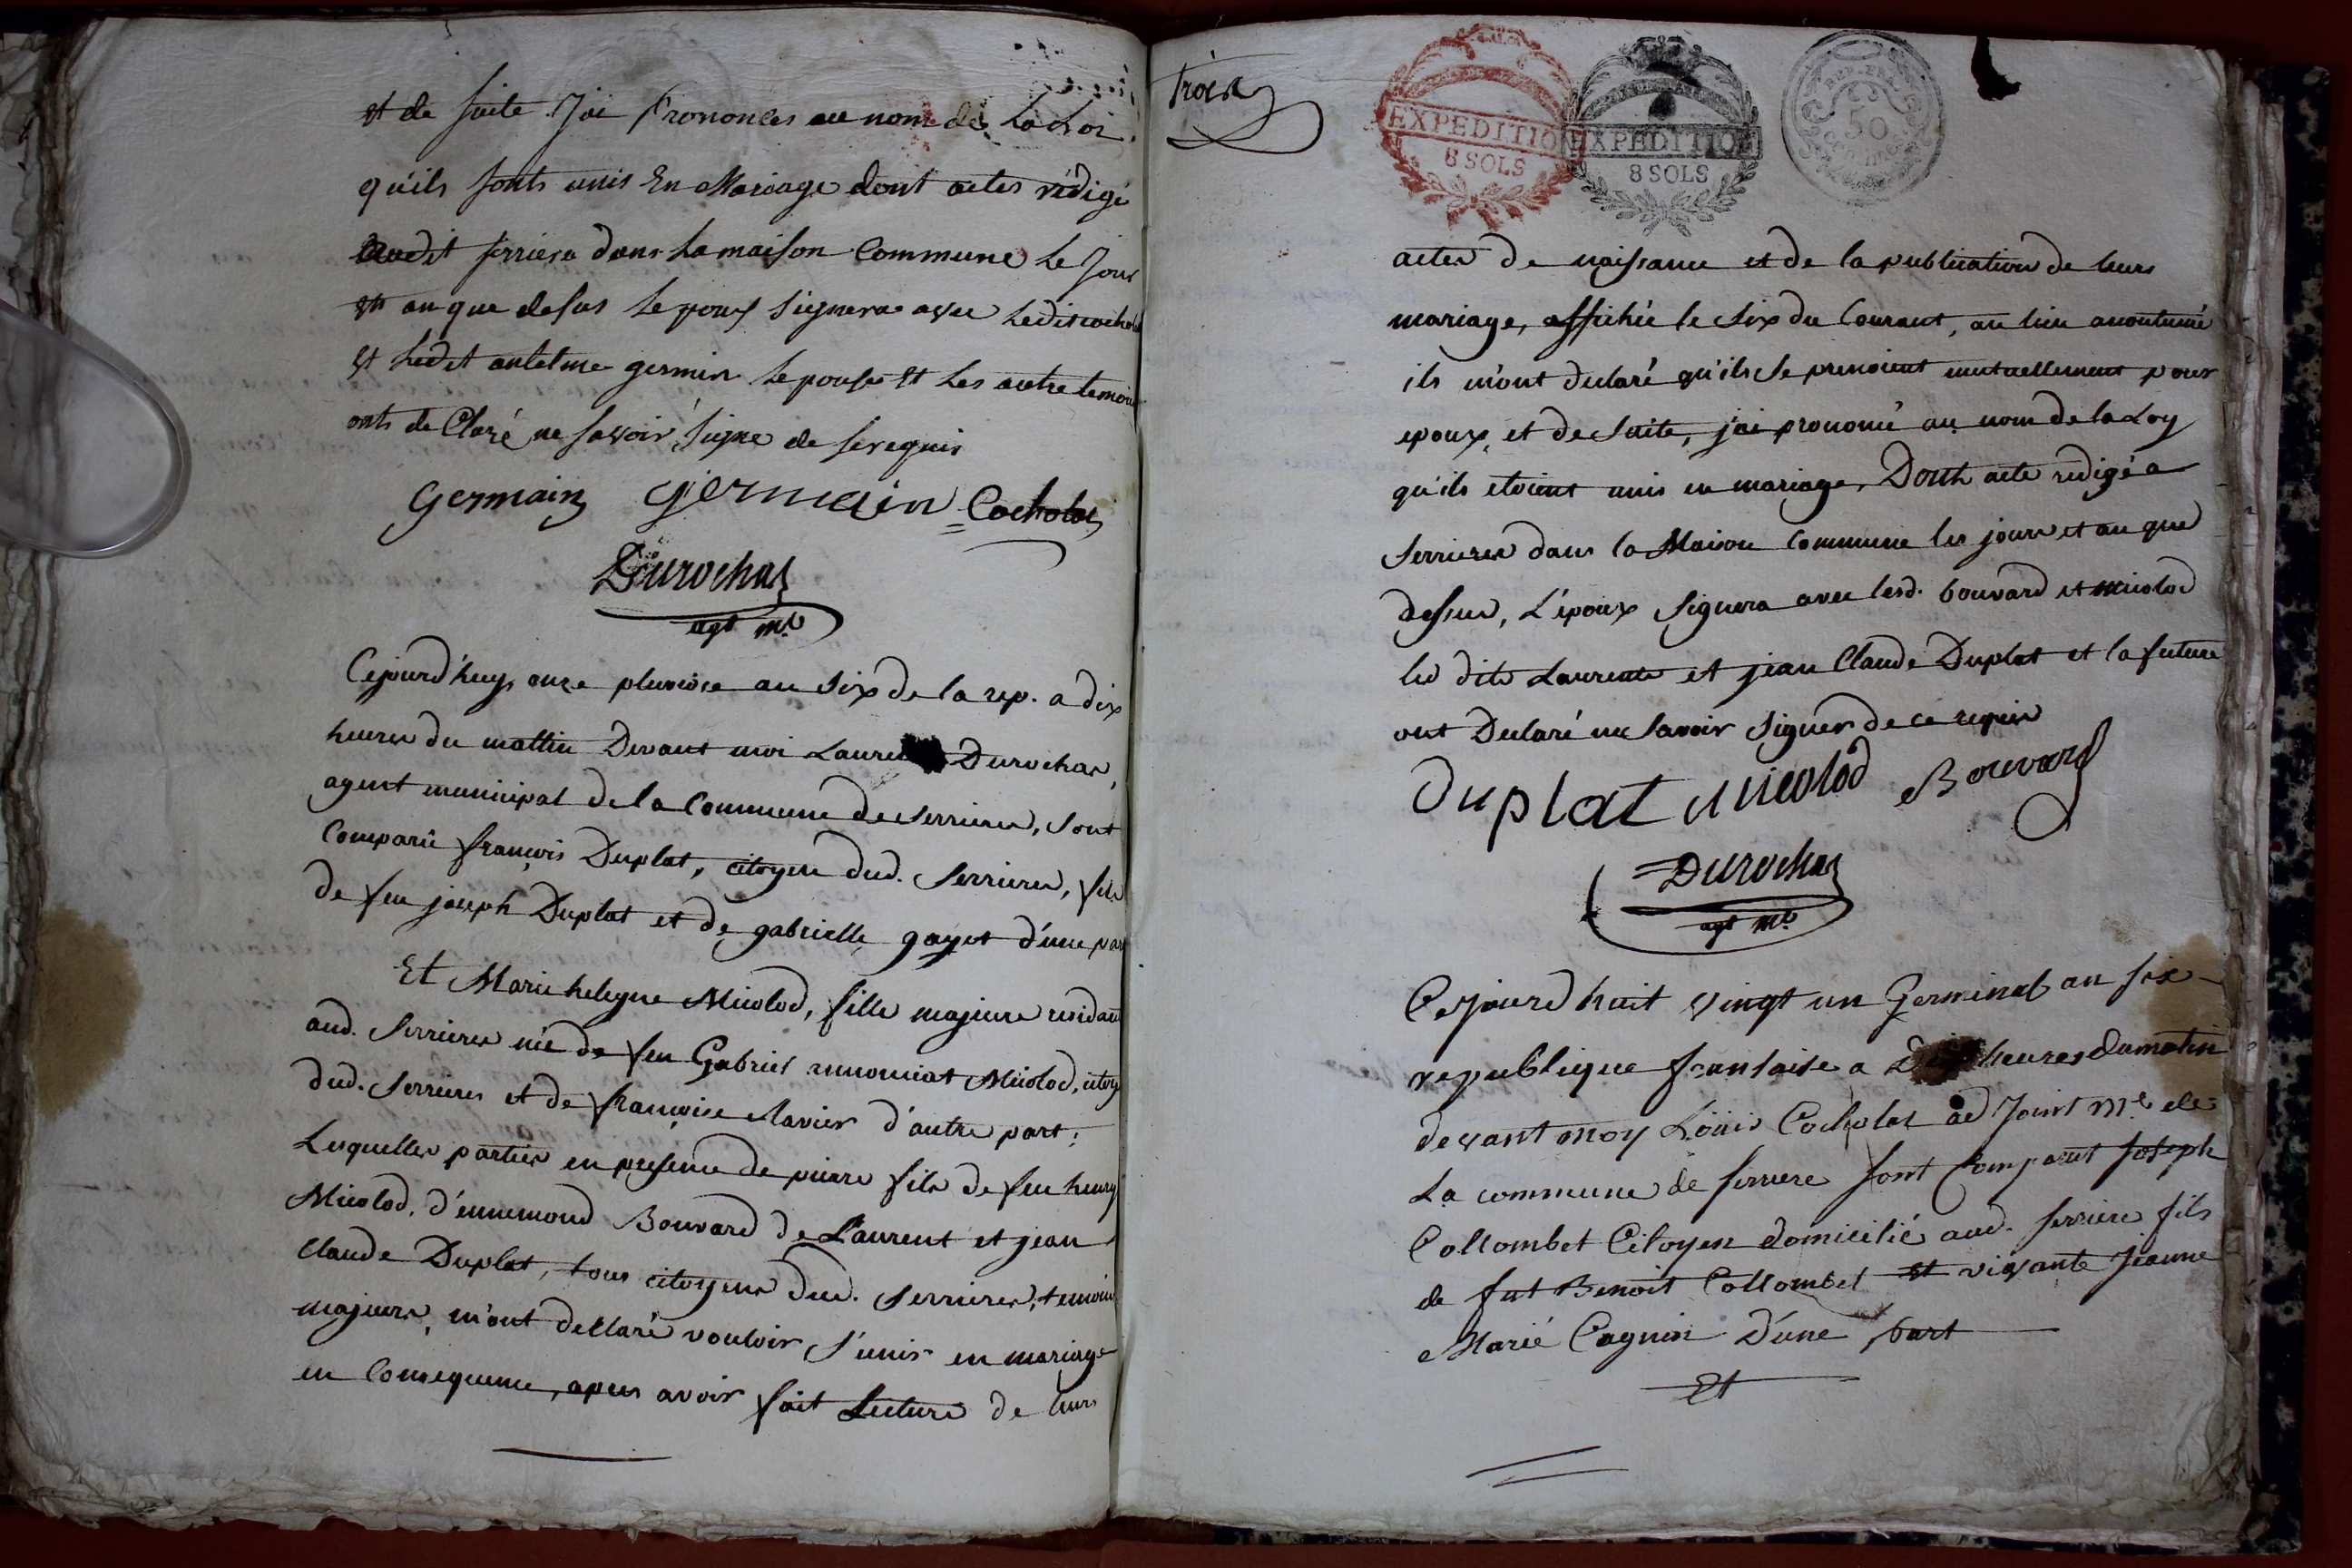 et de suite Jai prononcés au nom de La Loi
quils sonts unis En Mariage dont actes rédigé
audit serriere dans La maison Commune Le Jour
et an que desus Lepoux signera avec Ledit cochola
et Ledit antelme germin Lepouse et Les autre temoin
onts de Claré ne savoir signe de se requis
Germain germain Cocholat
Durochas
agt mal
Cejourd'huy onze pluviose an six de la rep. a dix
heures du mattin Devant moi Laurent Durochas,
agent municipal de la Commune de Serrieres, sont
Comparû françois Duplat, citoyen dud. Serrieres, fils
de feu joseph Duplat et de gabrielle gayet d'une part
Et Marie heleyne Micolod, fille majeure residant
aud. Serrieres née de feu Gabriel Micolod, citoy
dud. Serrieres et de françoise Ravier d'autre part;
Lesquelles parties en presence de pierre fils de feu henry
Micolod, d'ennemond Bouvard de Laurent et jean
Claude Duplat, tous citoyens dud. Serrieres, temoins
majeurs, m'ont dellaré vouloir s'unir en mariage
en Consequence, apres avoir fait Lecture de leurs
Trois
EXPEDITION
8 SOLS
EXPEDITION
8 SOLS
REP. FRA.
50
CENTIMES
actes de naissance et de la publication de leurs
mariage, affichée le Six du Courant, au lieu acoutumé
ils m'ont declaré qu'ils se prenoient mutuellement pour
epoux, et de suite, jai prononcé au nom de la Loy
qu'ils etoient unis en mariage, Dont acte redigé a
Serrieres dans la Maison Commune les jours et an que
dessus, L'époux signera avec lesd. bouvard et micolod
les dits Laurent et jean Claude Duplat et la future
ont Declaré ne savoir signer de ce requis
Duplat micolod Bouvard
Durochas
agt mal
Cejourd huit vingt un Germinal an six
republique fransaise a Dix heures du matin
devant moy Loüis Cocholat ad Joint mal de
La commune de serriere sont Comparut Joseph
Collombet Citoyen domicilié aud. serriere fils
de fut Benoit Collombet et vivante Jeanne
Marié Cagnin D'une part
Et